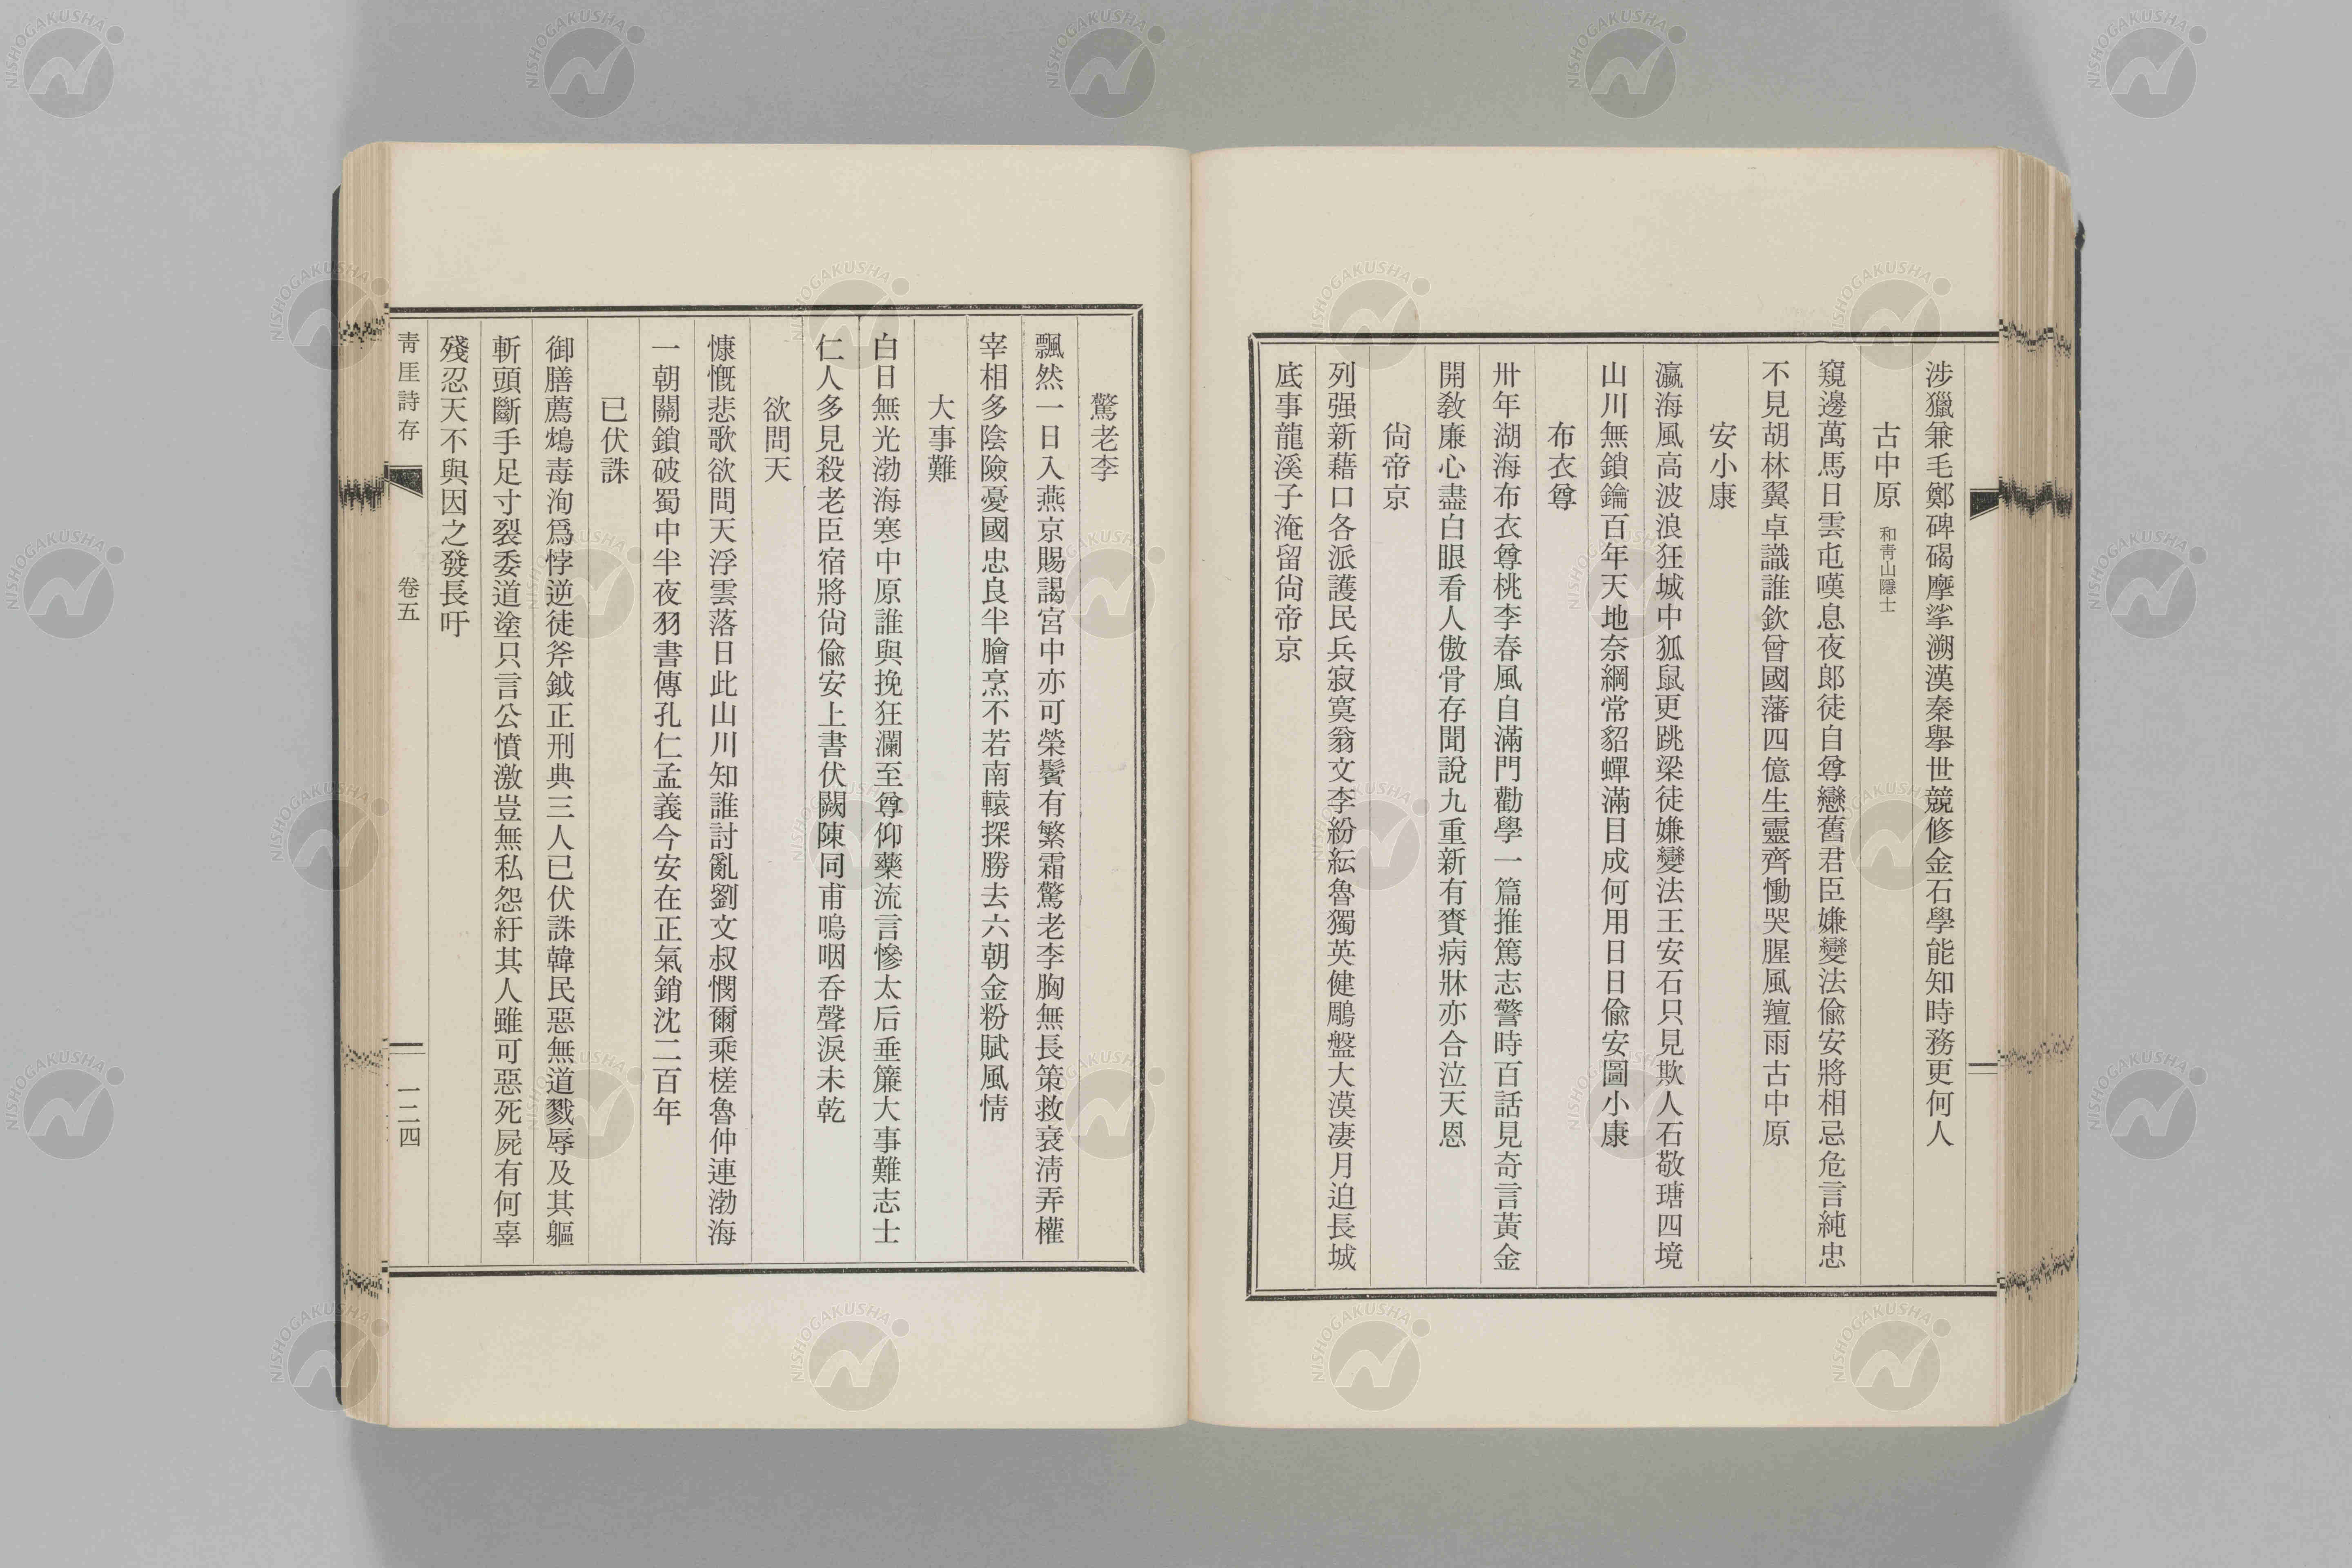 涉獵兼毛鄭碑碣摩挲溯漢秦擧世競修金石學能知時務更何人
古中原 和靑山隱士
窺邊萬馬日雲屯嘆息夜郞徒自尊戀舊君臣嫌變法偸安將相忌危言純忠
不見胡林翼卓識誰欽曾國藩四億生靈齊慟哭腥風羶雨古中原
安小康
瀛海風高波浪狂城中狐鼠更跳梁徒嫌變法王安石只見欺人石敬瑭四境
山川無鎖鑰百年天地奈綱常貂蟬滿目成何用日日偸安圖小康
布衣尊
卅年湖海布衣尊桃李春風自滿門勸學一篇推篤志警時百話見奇言黃金
開敎廉心盡白眼看人傲骨存聞說九重新有賚病牀亦合泣天恩
尙帝京
列强新藉口各派護民兵寂寞翁文李紛紜魯獨英健鵰盤大漠凄月迫長城
底事龍溪子淹留尙帝京
驚老李
飄然一日入燕京賜謁宮中亦可榮鬢有繁霜驚老李胸無長策救衰淸弄權
宰相多陰險憂國忠良半膾烹不若南轅探勝去六朝金粉賦風情
大事難
白日無光渤海寒中原誰與挽狂瀾至尊仰藥流言慘太后垂簾大事難志士
仁人多見殺老臣宿將尙偸安上書伏闕陳同甫嗚咽呑聲淚未乾
欲問天
慷慨悲歌欲問天浮雲落日此山川知誰討亂劉文叔憫爾乘槎魯仲連渤海
一朝關鎖破蜀中半夜羽書傳孔仁孟義今安在正氣銷沈二百年
已伏誅
御膳薦鴆毒洵爲悖逆徒斧鉞正刑典三人已伏誅韓民惡無道戮辱及其軀
斬頭斷手足寸裂委道塗只言公憤激豈無私怨紆其人雖可惡死屍有何辜
殘忍天不與因之發長吁
靑厓詩存 卷五 一二四
NISHOGAKUSHA